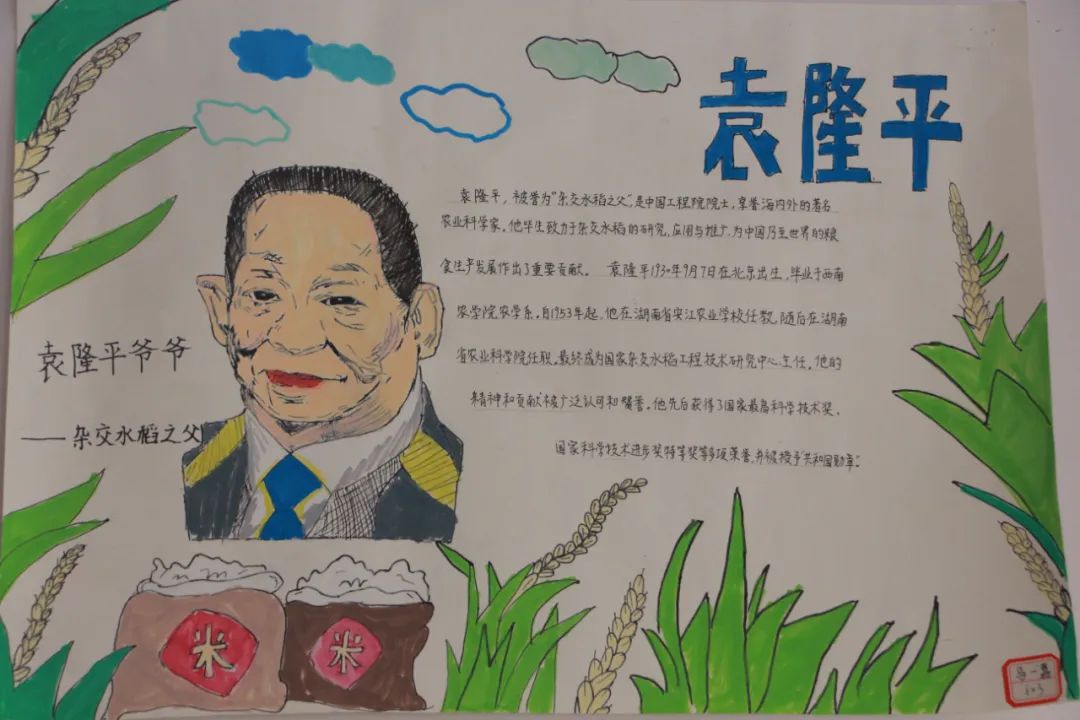 袁隆平
袁隆平，被誉为“杂交水稻之父”，是中国工程院院士，享誉海内外的著名
农业科学家。他毕生致力于杂交水稻的研究，应用与推广，为中国乃至世界的粮
食生产发展作出了重要贡献。 袁隆平1930年9月7日在北京出生，毕业于西南
农学院农学系。自1953年起，他在湖南省安江农业学校任教，随后在湖南
省农业科学院任职。最终成为国家杂交水稻工程技术研究中心主任。他的
精神和贡献被广泛认可和赞誉。他先后获得了国家最高科学技术奖，
国家科学技术进步奖特等奖等多项荣誉，并被授予“共和国勋章”。
袁隆平爷爷
——杂交水稻之父
米
米